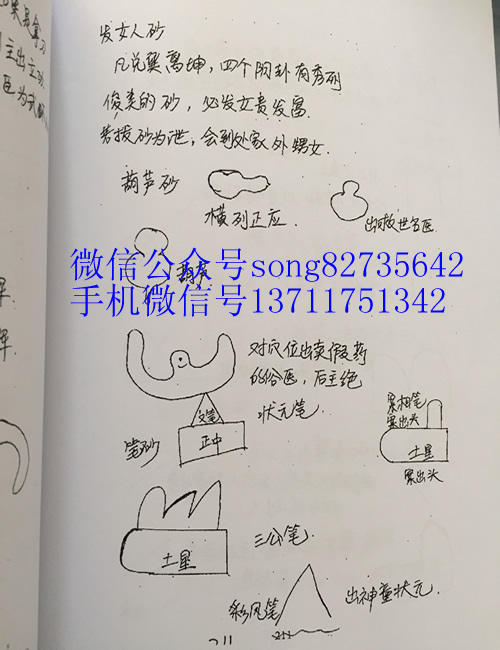 发女人砂
凡兑巽离坤，四个阴卦有秀丽
俊美的砂，必发女贵发富.
若拨砂为泄，会到处家外甥女.
葫芦砂
横列正应.
出救世名医
葫芦
微信公众号song82735642
手机微信号13711751342
对穴位出卖假药
的俗医，后主绝
文笔
状元笔.
笔砂
正中
土星
宰出头
土星
三公笔.
彩凤笔
出神童状元.
211